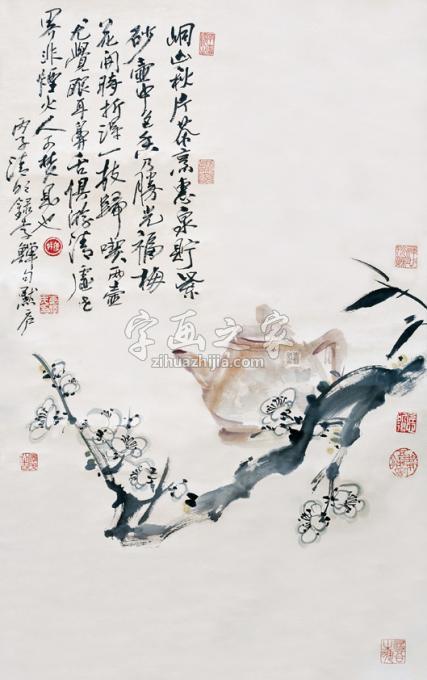 峒山秋片茶烹惠泉貯紫
砂壺中色香乃勝光福梅
花開時折得一枝歸喫兩壺
尤覺眼耳鼻舌俱游清虛世
界非煙火人可梦見也
丙子清明錄李鱓句
字画之家
zihuazhijia.com